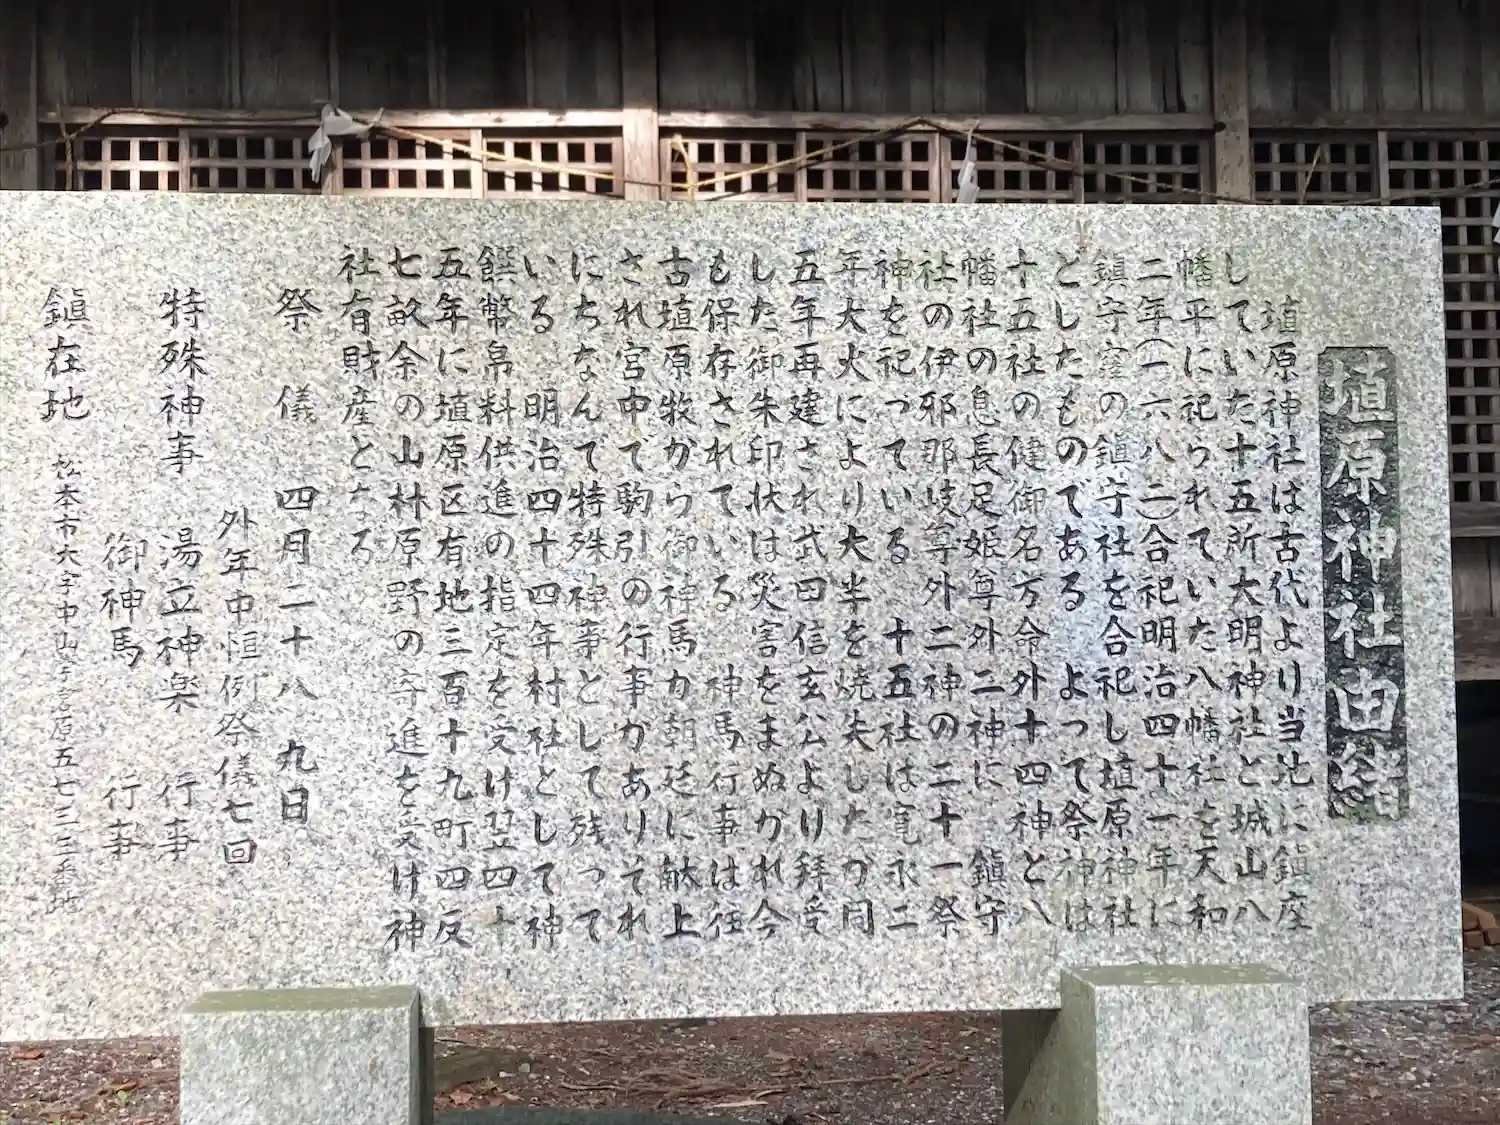 埴原神社由緒
埴原神社は古代より当地に鎮座
していた十五所大明神社と城山八
幡平に祀られていた八幡社を天和
二年(一六八二)合祀明治四十一年に
鎮守窪の鎮守社を合祀し埴原神社
としたものである よって祭神は
十五社の健御名方命外十四神と八
幡社の息長足姫尊外二神に 鎮守
社の伊邪那岐尊外二神の二十一祭
神を祀っている 十五社は寛永二
年大火により大半を焼失したが同
五年再建され武田信玄公より拝受
した御朱印状は災害をまぬかれ今
も保存されている 神馬行事は往
古埴原牧から御神馬が朝廷に献上
され宮中で駒引の行事がありそれ
にちなんで特殊神事として残って
いる 明治四十四年村社として神
饌幣帛料供進の指定を受け翌四十
五年に埴原区有地三百十九町四反
七畝余の山林原野の寄進を受け神
社有財産となる
祭 儀 四月二十八 九日
外年中恒例祭儀七回
特殊神事 湯立神楽 行事
御神馬 行事
鎮在地 松本市大字中山字宮原五七三三番地